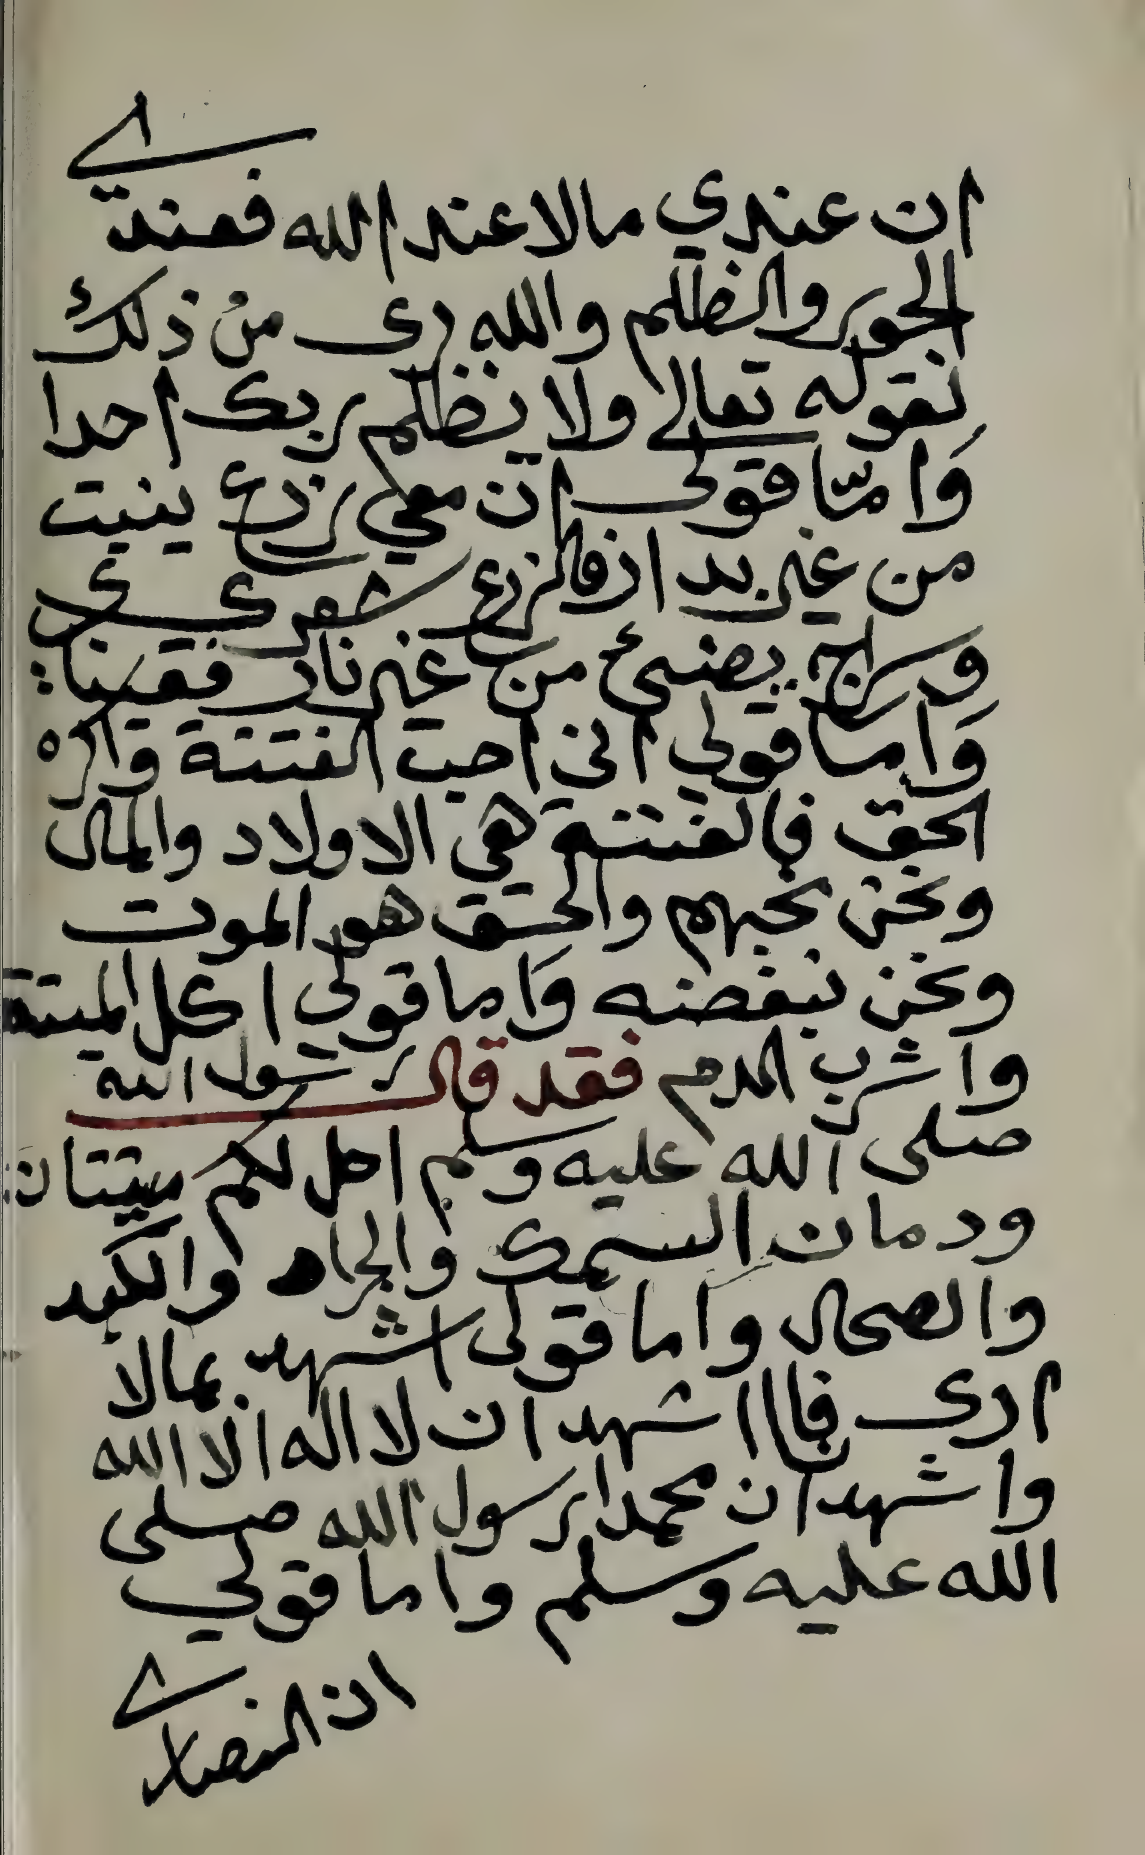 ان عندي مالا عند الله فعندي
الجور والظلم والله بري من ذلك
لقوله تعالى ولا يظلم ربك احدا
وامّا قولي ان معي زرع ينبت
من غير بد اذ فالزرع شعري
وسراج يضئ من غير نار فعينا
واما قولي اني احب الفتنة واكره
الحق فالفتنة هي الاولاد والمال
ونحن نحبهم والحق هو الموت
ونحن نبغضه واما قولي اكل الميتة
واشرب الدم فقد قال رسول الله
صلى الله عليه وسلم احل لكم ميتتان
ودمان السمك والجراد والكبد
والصحال واما قولي اشهد بمالا
ادري فانا اشهد ان لا اله الا الله
واشهد ان محمدا رسول الله صلى
الله عليه وسلم واما قولي
ان النصاري